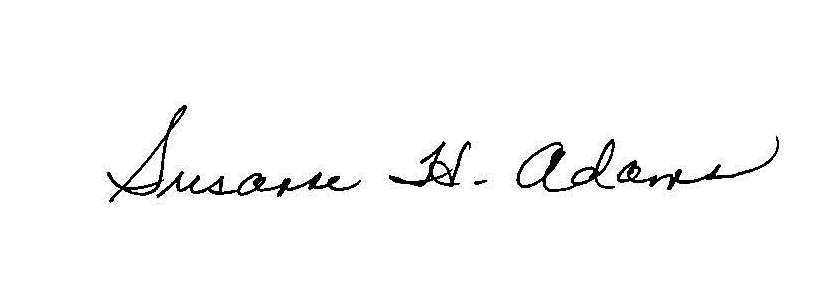 Susanne H. Adams